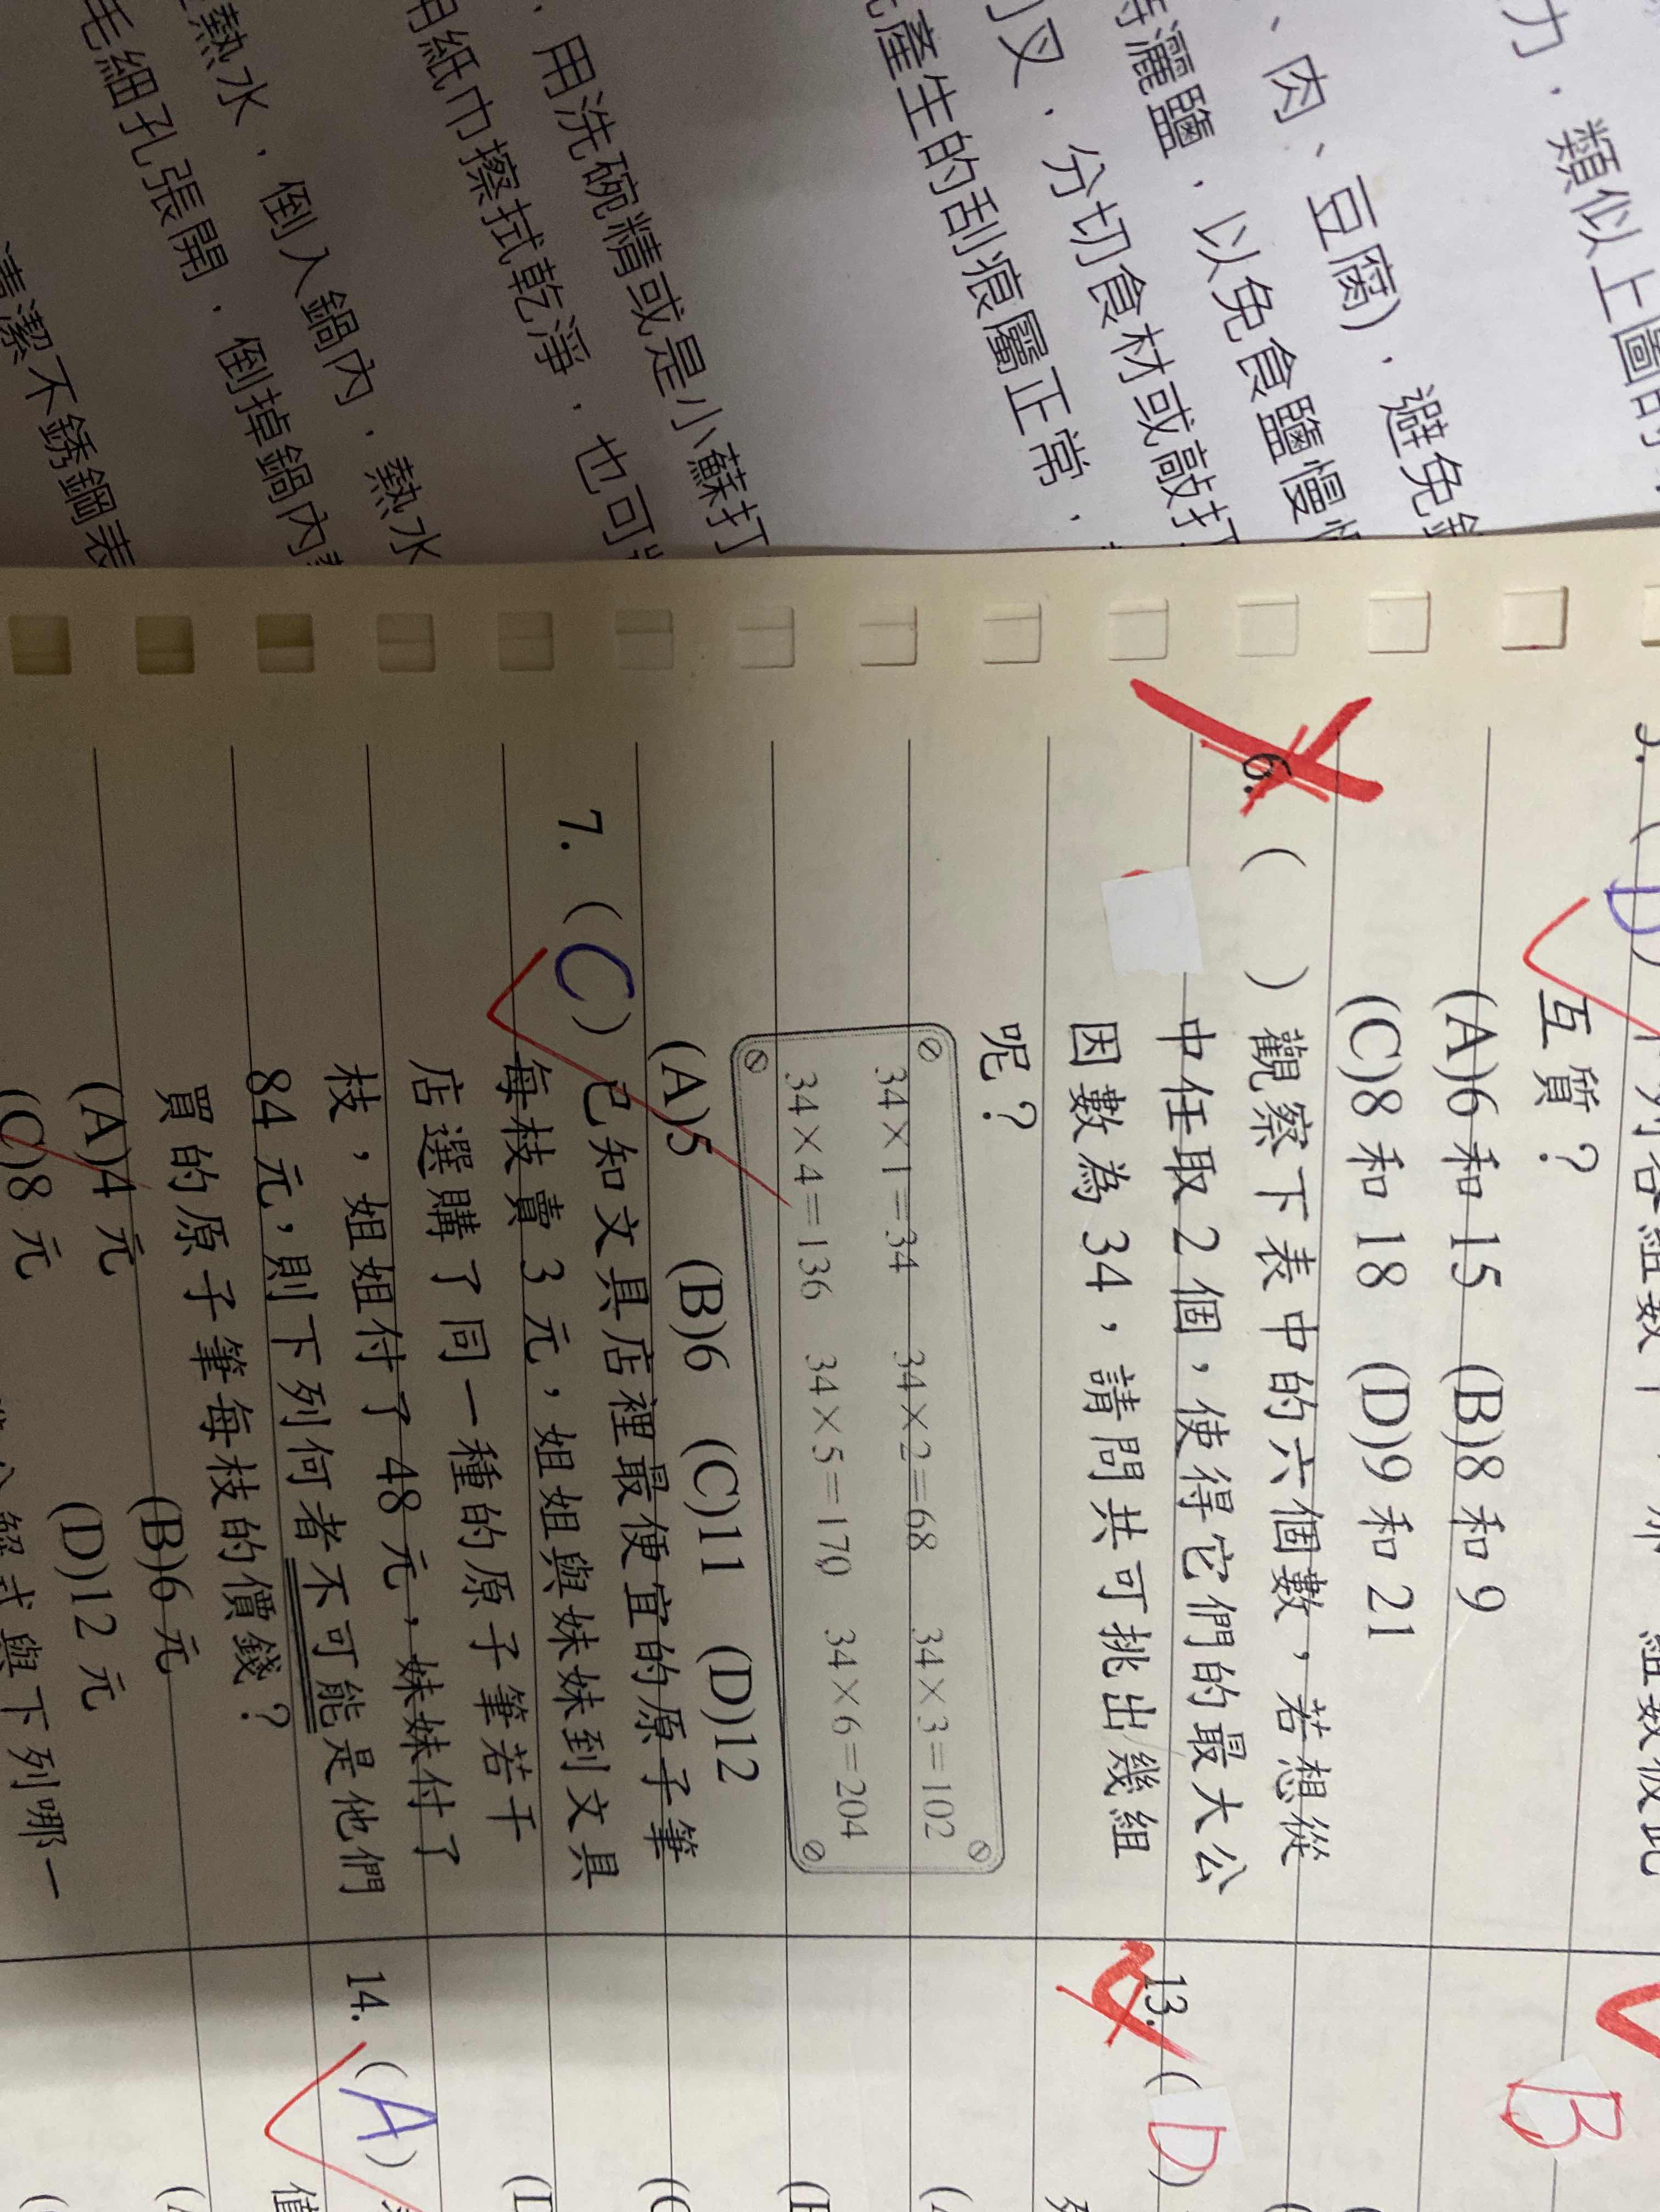 力，類似上圖的
、肉、豆腐)，避免
灑鹽，以免食鹽慢
刀叉，分切食材或敲打
產生的刮痕屬正常，
，用洗碗精或是小蘇打
用紙巾擦拭乾淨，也可
熱水，倒入鍋內，熱水
毛細孔張開，倒掉鍋內
清潔不銹鋼表
互質？
(A)6 和 15 (B)8 和 9
(C)8 和 18 (D)9 和 21
6. ( ) 觀察下表中的六個數，若想從
中任取 2 個，使得它們的最大公
因數為 34，請問共可挑出幾組
呢？
34×1=34 34×2=68 34×3=102
34×4=136 34×5=170 34×6=204
(A)5 (B)6 (C)11 (D)12
7. (C) 已知文具店裡最便宜的原子筆
每枝賣 3 元，姐姐與妹妹到文具
店選購了同一種的原子筆若干
枝，姐姐付了 48 元，妹妹付了
84 元，則下列何者不可能是他們
買的原子筆每枝的價錢？
(A)4 元 (B)6 元
(C)8 元 (D)12 元
解式與下列哪一
B
13. (D)
14. (A)